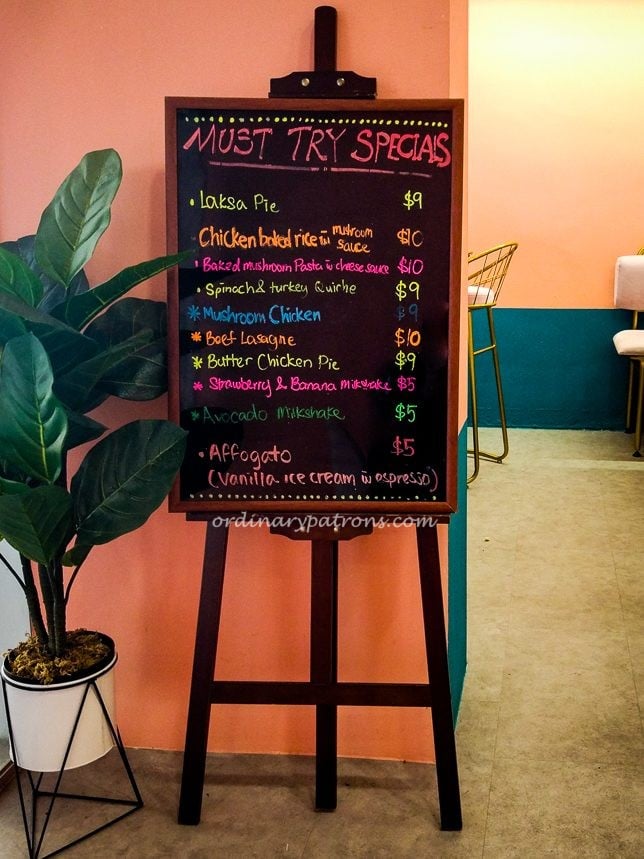 MUST TRY SPECIALS
• Laksa Pie $9
Chicken baked rice w mushroom sauce $10
• Baked mushroom Pasta w cheese sauce $10
• Spinach & turkey Quiche $9
* Mushroom Chicken $9
* Beef Lasagne $10
* Butter Chicken Pie $9
* Strawberry & Banana milkshake $5
* Avocado Milkshake $5
• Affogato $5
(Vanilla ice cream w espresso)
ordinarypatrons.com